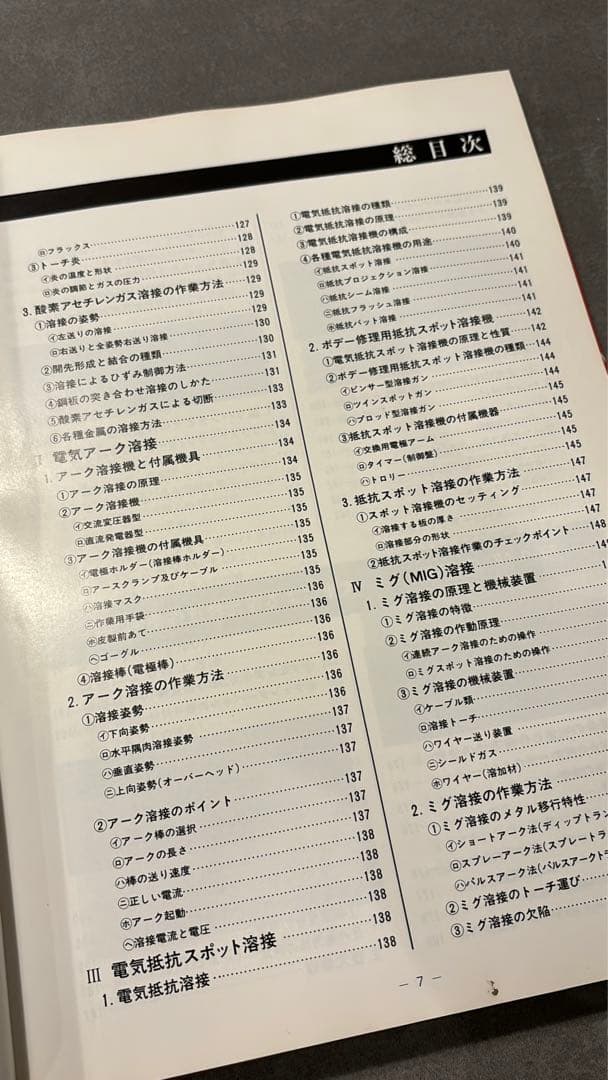 総目次
㋺フラックス…………127
③トーチ炎…………128
㋑炎の温度と形状…………128
㋺炎の調節とガスの圧力…………129
3.酸素アセチレンガス溶接の作業方法…………129
①溶接の姿勢…………129
㋑左送りの溶接…………129
㋺右送りと全姿勢右送り溶接…………130
②開先形成と結合の種類…………130
③溶接によるひずみ制御方法…………131
④鋼板の突き合わせ溶接のしかた…………131
⑤酸素アセチレンガスによる切断…………133
⑥各種金属の溶接方法…………133
電気アーク溶接…………134
1.アーク溶接機と付属機具…………134
①アーク溶接の原理…………134
②アーク溶接機…………135
㋑交流変圧器型…………135
㋺直流発電器型…………135
③アーク溶接機の付属機具…………135
㋑電極ホルダー(溶接棒ホルダー)…………135
㋺アースクランプ及びケーブル…………135
㋩溶接マスク…………136
㋥作業用手袋…………136
㋭皮製前あて…………136
㋬ゴーグル…………136
④溶接棒(電極棒)…………136
2.アーク溶接の作業方法…………136
①溶接姿勢…………136
㋑下向姿勢…………137
㋺水平隅肉溶接姿勢…………137
㋩垂直姿勢…………137
㋥上向姿勢(オーバーヘッド)…………137
②アーク溶接のポイント…………137
㋑アーク棒の選択…………137
㋺アークの長さ…………138
㋩棒の送り速度…………138
㋥正しい電流…………138
㋭アーク起動…………138
㋬溶接電流と電圧…………138
Ⅲ 電気抵抗スポット溶接…………138
1.電気抵抗溶接…………138
①電気抵抗溶接の種類…………139
②電気抵抗溶接の原理…………139
③電気抵抗溶接機の構成…………139
④各種電気抵抗溶接機の用途…………140
㋑抵抗スポット溶接…………140
㋺抵抗プロジェクション溶接…………141
㋩抵抗シーム溶接…………141
㋥抵抗フラッシュ溶接…………141
㋭抵抗バット溶接…………141
2.ボデー修理用抵抗スポット溶接機…………142
①電気抵抗スポット溶接機の原理と性質…………142
②ボデー修理用抵抗スポット溶接機の種類…………144
㋑ピンサー型溶接ガン…………144
㋺ツインスポットガン…………145
㋩プロッド型溶接ガン…………145
③抵抗スポット溶接機の付属機器…………145
㋑交換用電極アーム…………145
㋺タイマー(制御盤)…………145
㋩トロリー…………145
3.抵抗スポット溶接の作業方法…………147
①スポット溶接機のセッティング…………147
㋑溶接する板の厚さ…………147
㋺溶接部分の形状…………147
②抵抗スポット溶接作業のチェックポイント…………148
Ⅳ ミグ(MIG)溶接…………
1.ミグ溶接の原理と機械装置…………
①ミグ溶接の特徴…………
②ミグ溶接の作動原理…………
㋑連続アーク溶接のための操作…………
㋺ミグスポット溶接のための操作…………
③ミグ溶接の機械装置…………
㋑ケーブル類…………
㋺溶接トーチ…………
㋩ワイヤー送り装置…………
㋥シールドガス…………
㋭ワイヤー(溶加材)…………
2.ミグ溶接の作業方法…………
①ミグ溶接のメタル移行特性…………
㋑ショートアーク法(ディップトラン
㋺スプレーアーク法(スプレートラ
㋩パルスアーク法(パルスアークトラ
②ミグ溶接のトーチ運び…………
③ミグ溶接の欠陥…………
－7－